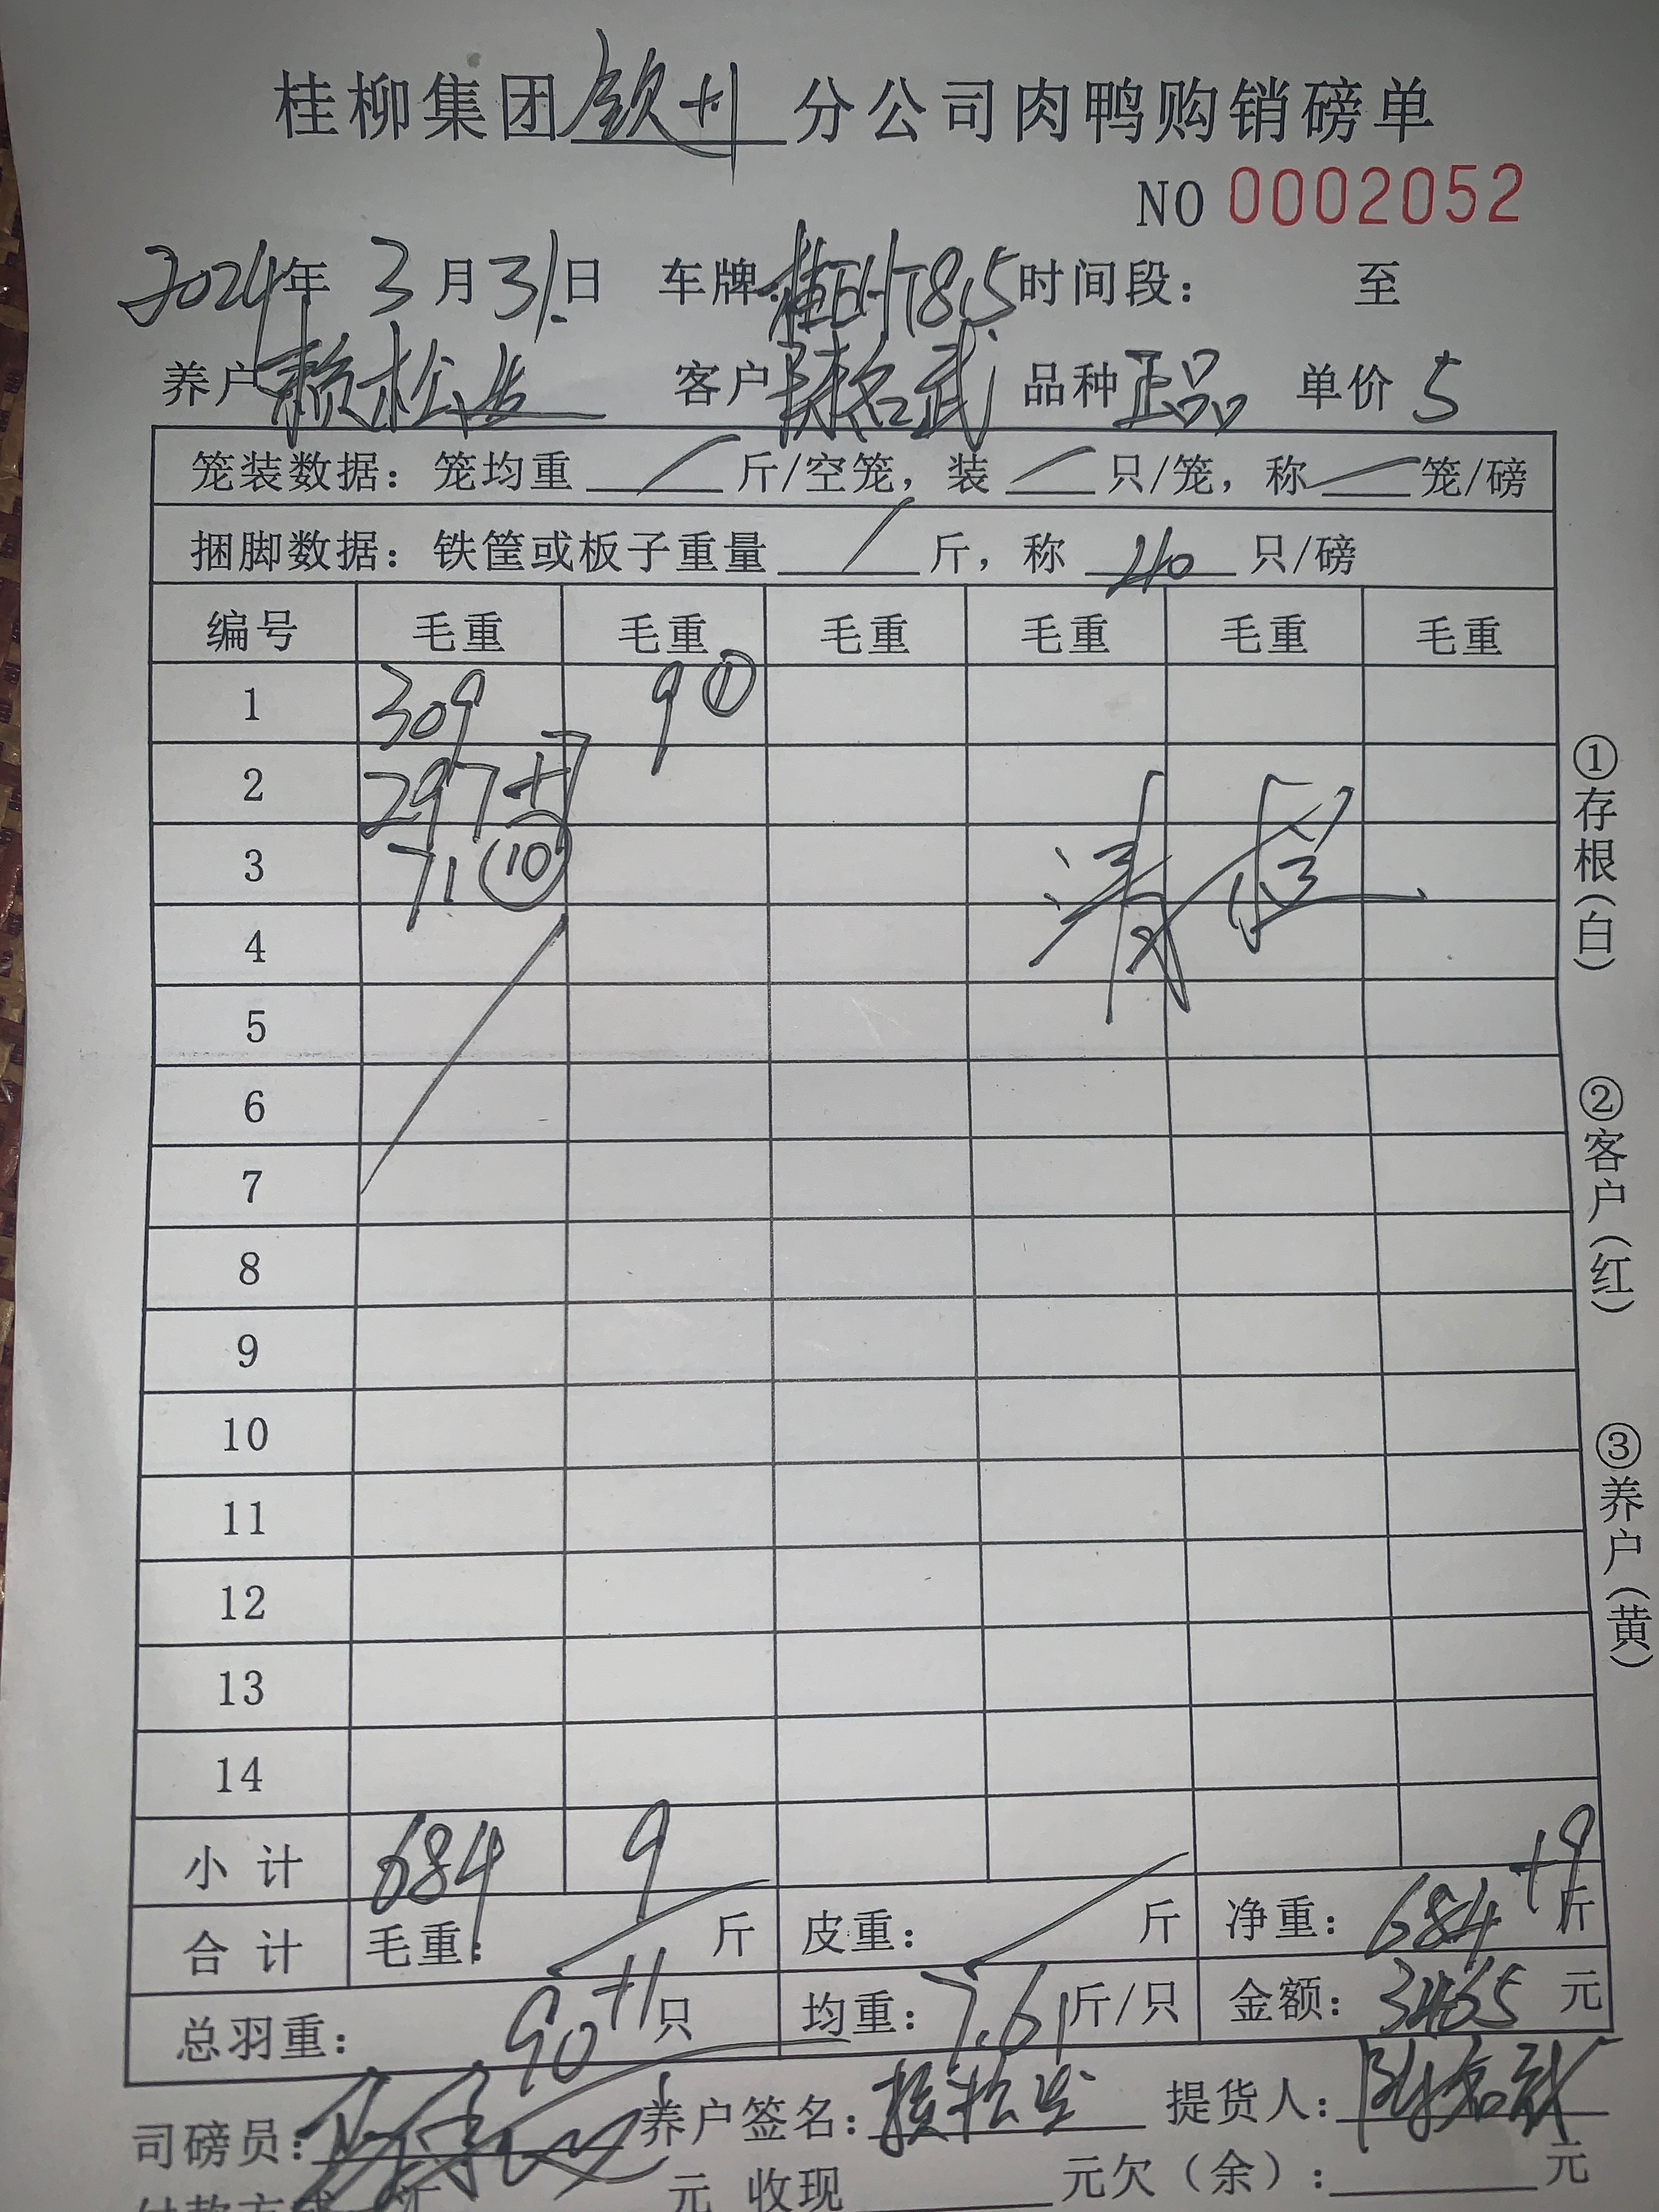 桂柳集团 钦州 分公司肉鸭购销磅单
NO 0002052
2024年 3 月 31日 车牌: 时间段: 至
养户 赖松 客户 名武 品种 正品 单价 5
笼装数据: 笼均重 / 斤/空笼, 装 / 只/笼, 称 / 笼/磅
捆脚数据: 铁筐或板子重量 / 斤, 称 40 只/磅
编号 毛重 毛重 毛重 毛重 毛重 毛重
1 309 9 ①
2 297+7
3 71 ⑩
清
4
5
6
7
8
9
10
11
12
13
14
小 计 684 9
合 计 毛重: 斤 皮重: 斤 净重: 684+9 斤
总羽重: 90+1 只 均重: 7.61 斤/只 金额: 3465 元
司磅员: 养户签名: 松 提货人: 名武
付款方式 汇 元 收现 元欠(余): 元
①存根(白)
②客户(红)
③养户(黄)